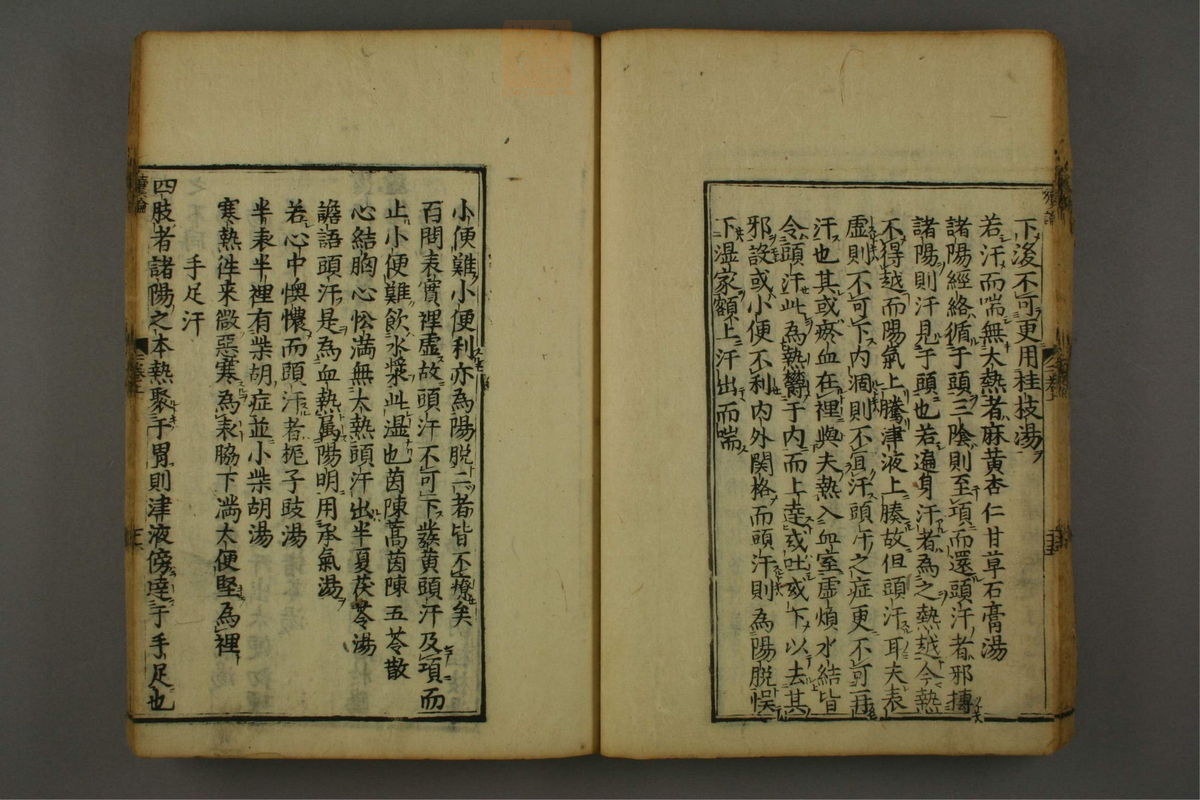 下後不可更用桂枝湯
若汗而喘無大熱者麻黄杏仁甘草石膏湯
諸陽經絡循于頭三陰則至項而還頭汗者邪搏
諸陽則汗見于頭也若遍身汗者為之熱越今熱
不得越而陽氣上騰津液上腠故但頭汗耳夫表
虚則不可下内涸則不宜汗頭汗之症更不可再
汗也其或瘀血在裡與夫熱入血室虚煩水結皆
令頭汗此為熱鬱于内而上達或吐或下以去其
邪設或小便不利内外関格而頭汗則為陽脱悞
下湿家額上汗出而喘
小便難小便利亦為陽脱二者皆不療矣
百問表實裡虚故頭汗不可下發黄頭汗及項而
止小便難飲水漿此湿也茵陳蒿茵陳五苓散
心結胸心忪満無大熱頭汗出半夏茯苓湯
譫語頭汗是為血熱属陽明用承氣湯
若心中懊憹而頭汗者梔子豉湯
半表半裡有柴胡症並小柴胡湯
寒熱徃来微惡寒為表脇下満大便堅為裡
手足汗
四肢者諸陽之本熱聚于胃則津液傍達于手足也